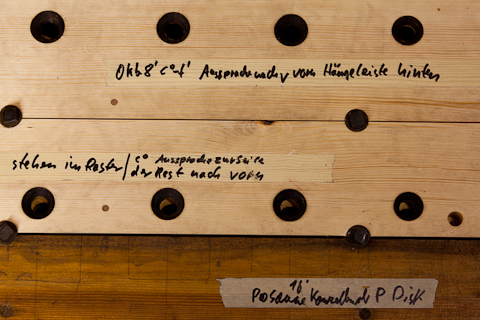 Okb 8' c°-f' Aussprache nach vorn Hängeleiste hinten
stehen im Raster / c° Aussprache zur Seite
der Rest nach vorn
16'
Posaune P Disk